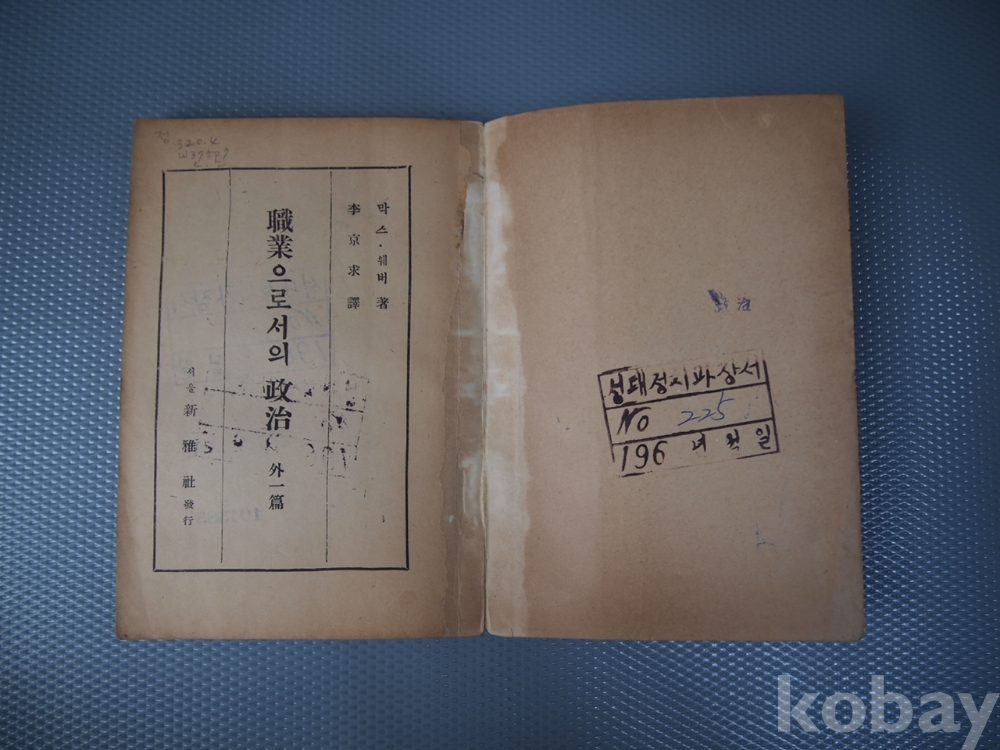 320.4
막스·웨버 著
李京求 譯
職業으로서의 政治
外一篇
서울 新雅社 發行
성대정치과장서
No 225
196 년 월 일
kobay